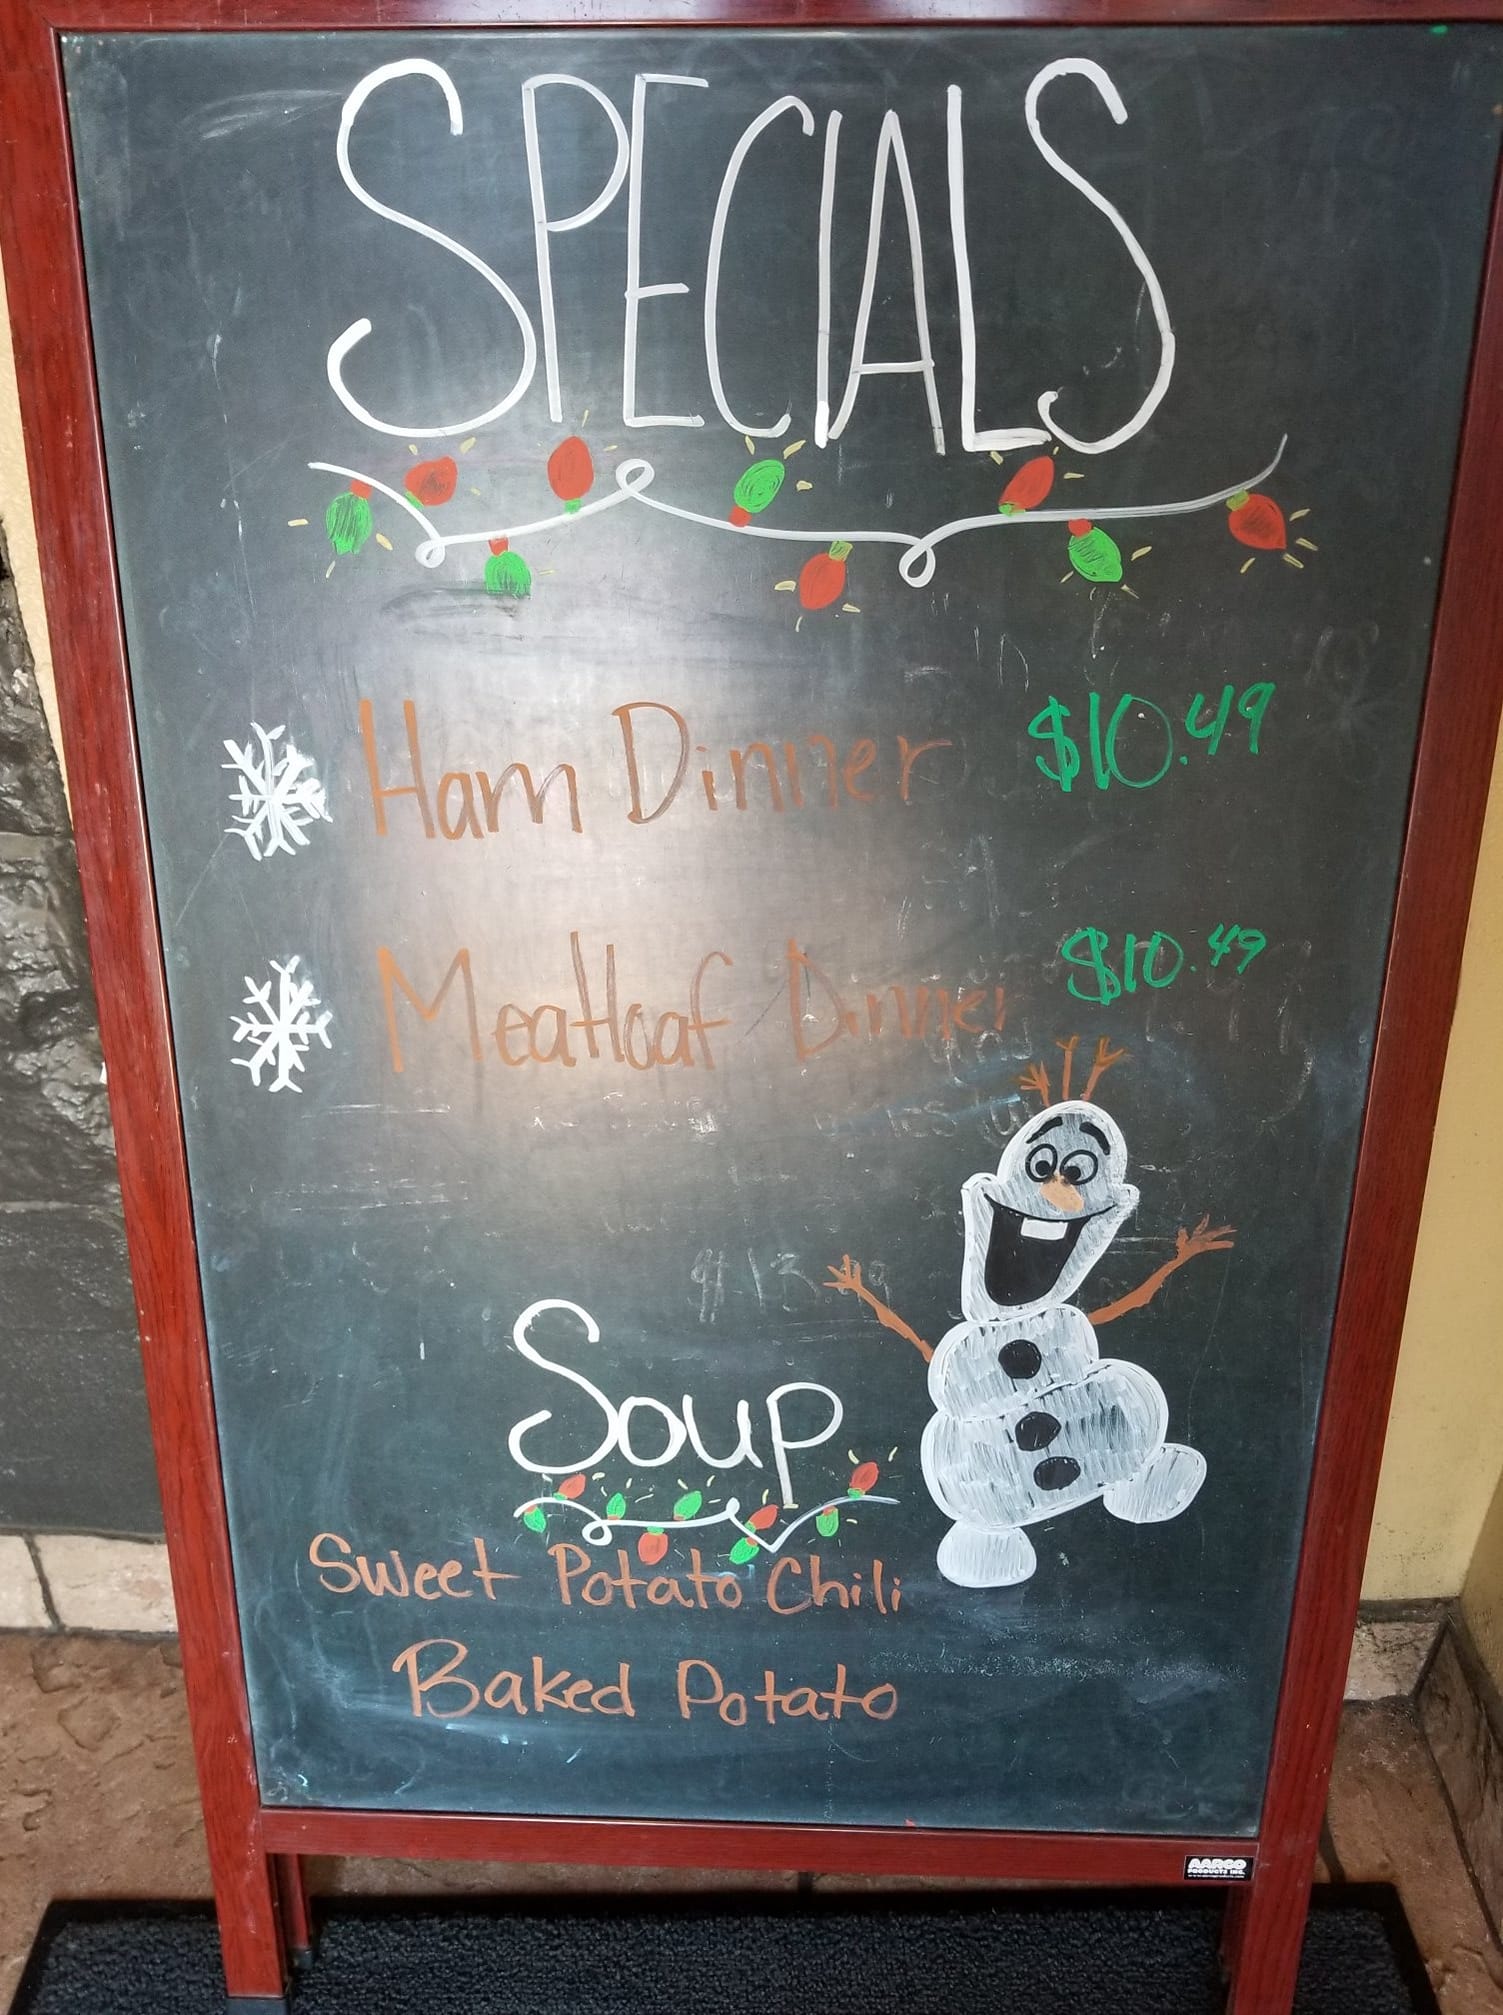 SPECIALS
Ham Dinner $10.49
Meatloaf Dinner $10.49
Soup
Sweet Potato Chili
Baked Potato
AARCO
PRODUCTS INC.